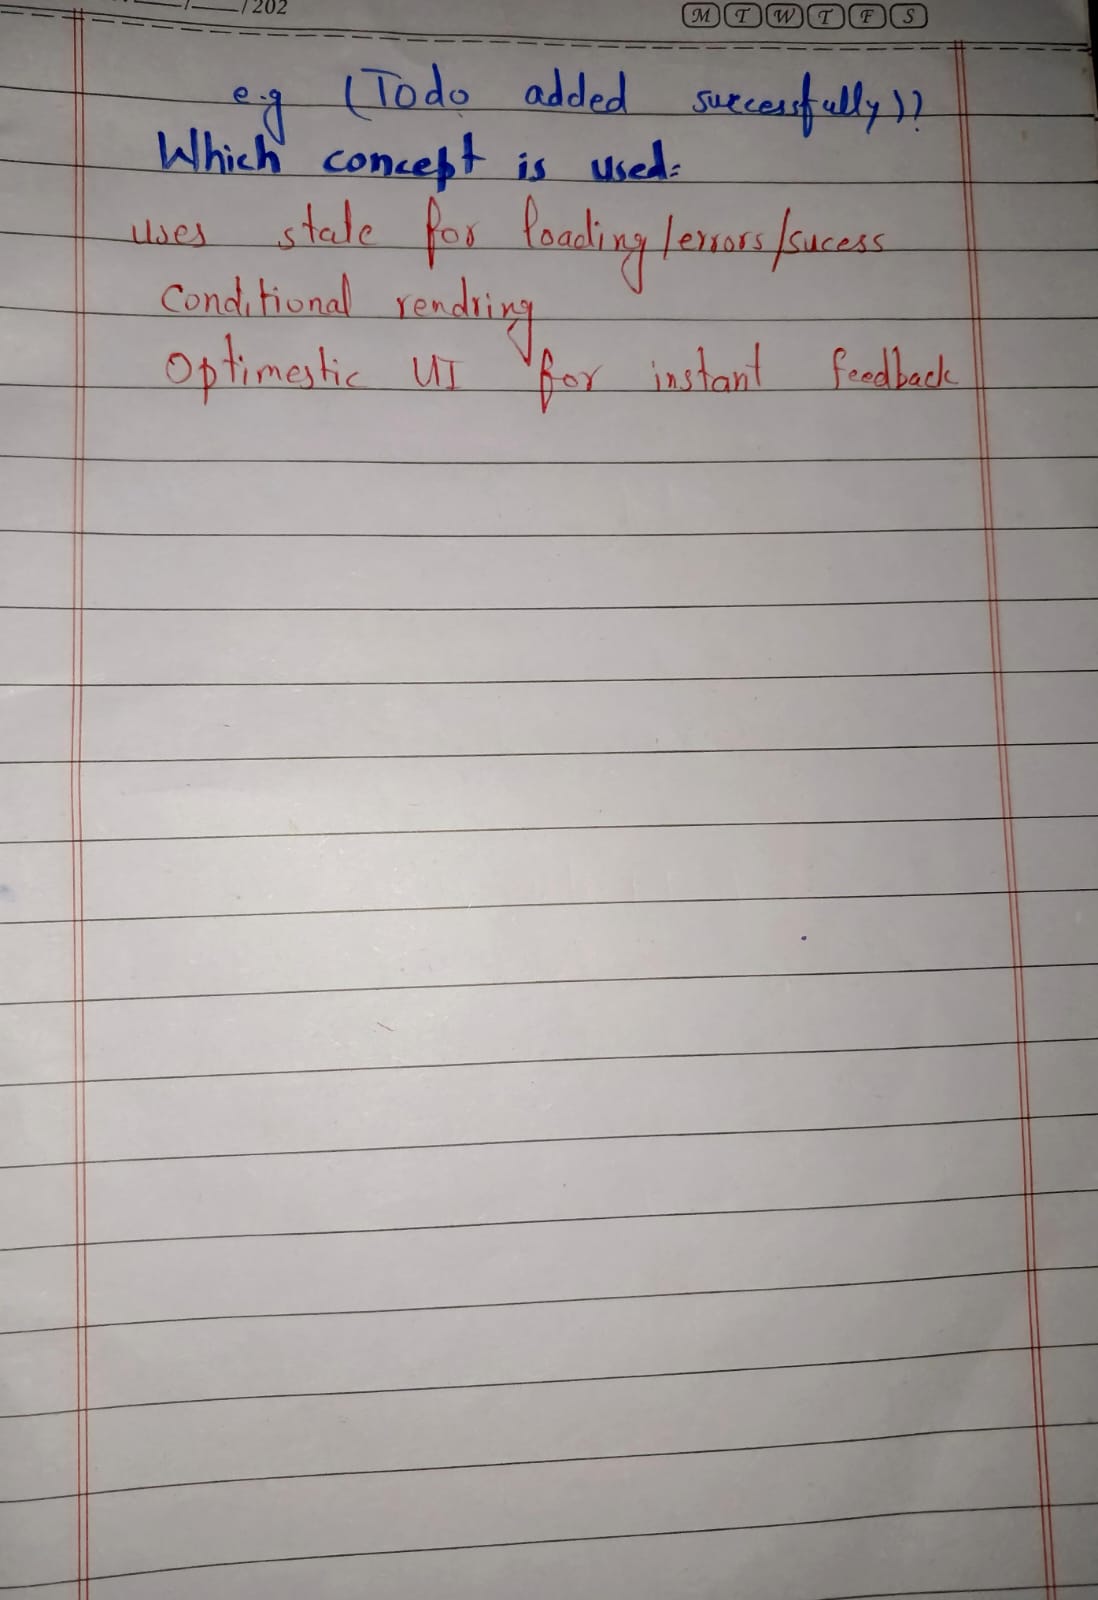 / /202 M T W T F S
e.g (Todo added successfully)?
Which concept is used:
uses state for loading/errors/sucess
Conditional rendring
Optimestic UI for instant feedback